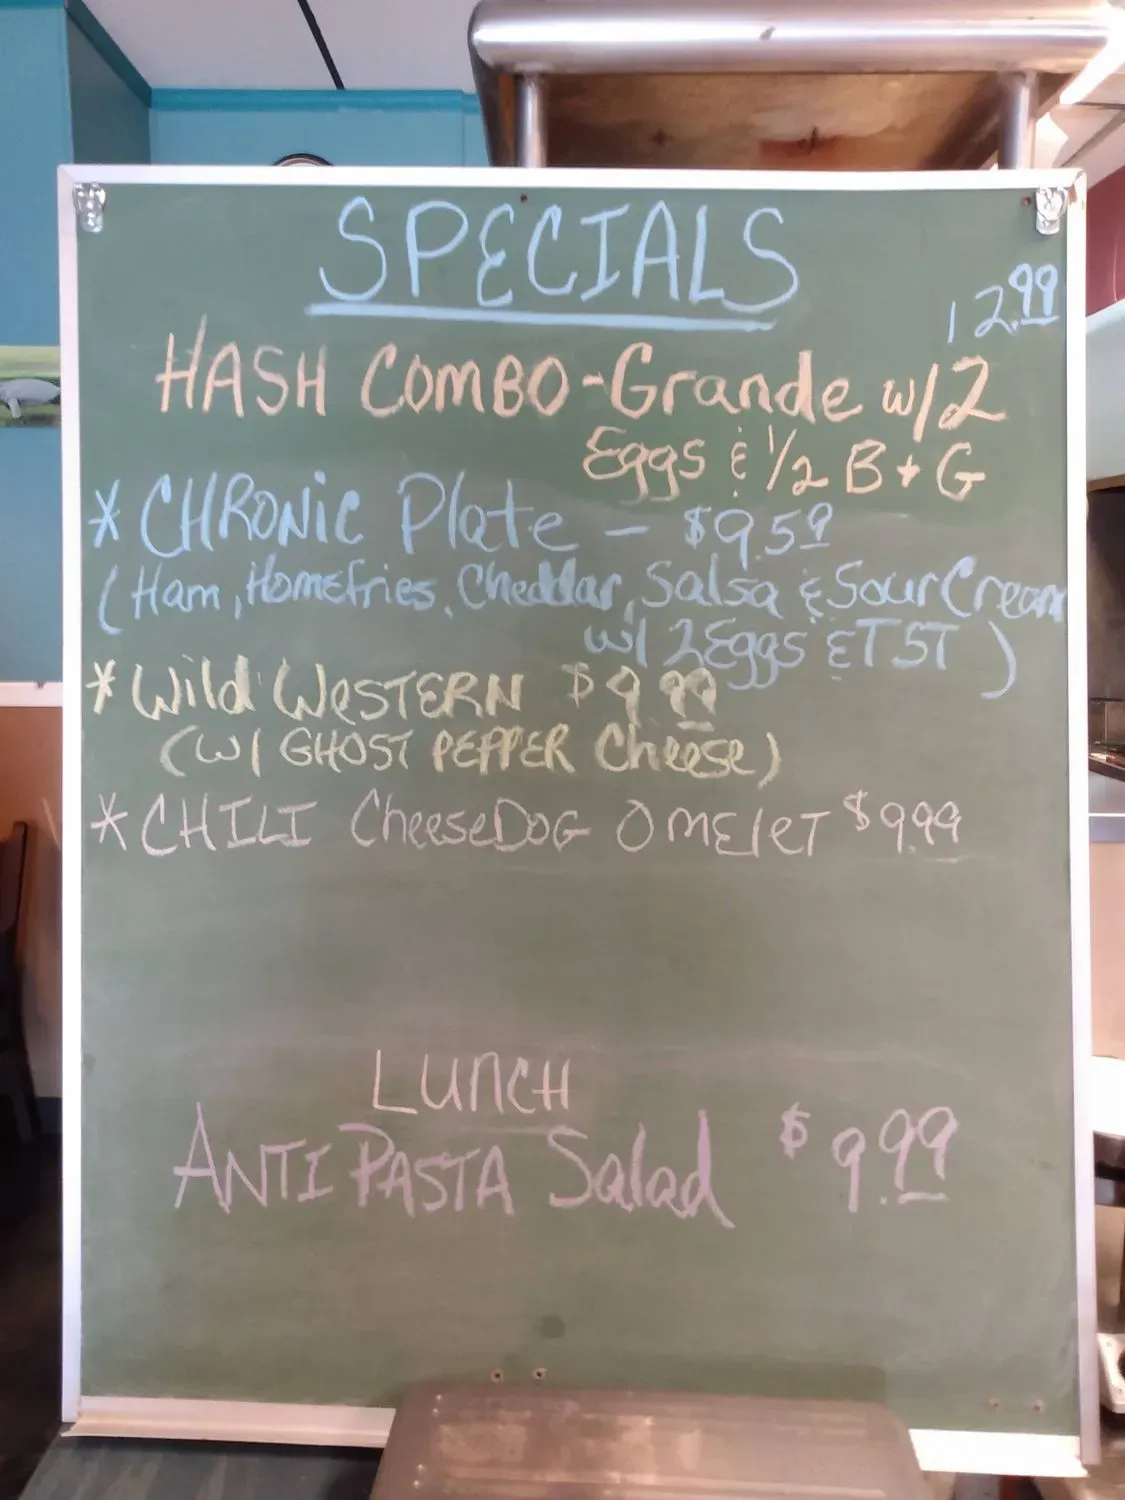 SPECIALS
12.99
HASH COMBO-Grande w/2
Eggs & 1/2 B+G
* CHRONIC Plate - $9.59
(Ham, Homefries, Cheddar, Salsa & Sour Cream
w/ 2 Eggs & TST)
* Wild WESTERN $9.99
(w/ GHOST PEPPER Cheese)
* CHILI CheeseDOG OMElET $9.99
LUNCH
ANTI PASTA Salad $9.99